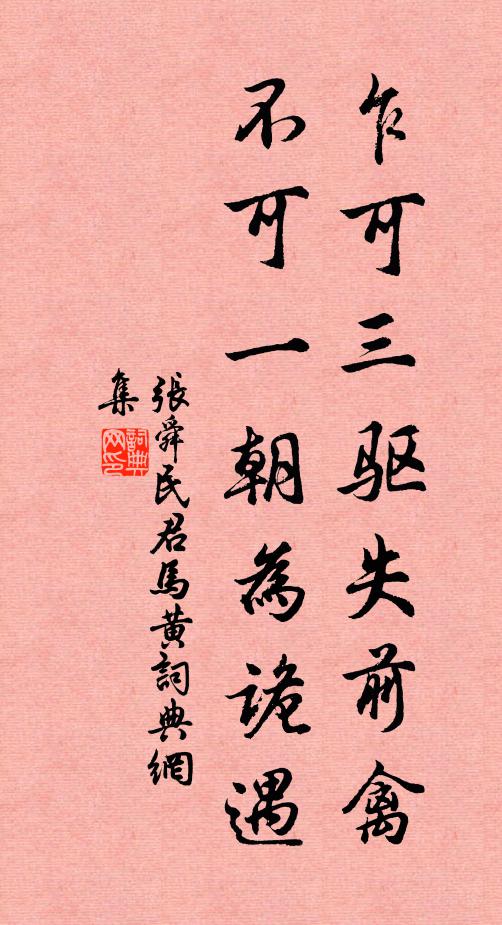 乍可三驱失前禽
不可一朝為詭遇
張舜民君馬黄詞典網
集
詞典网印